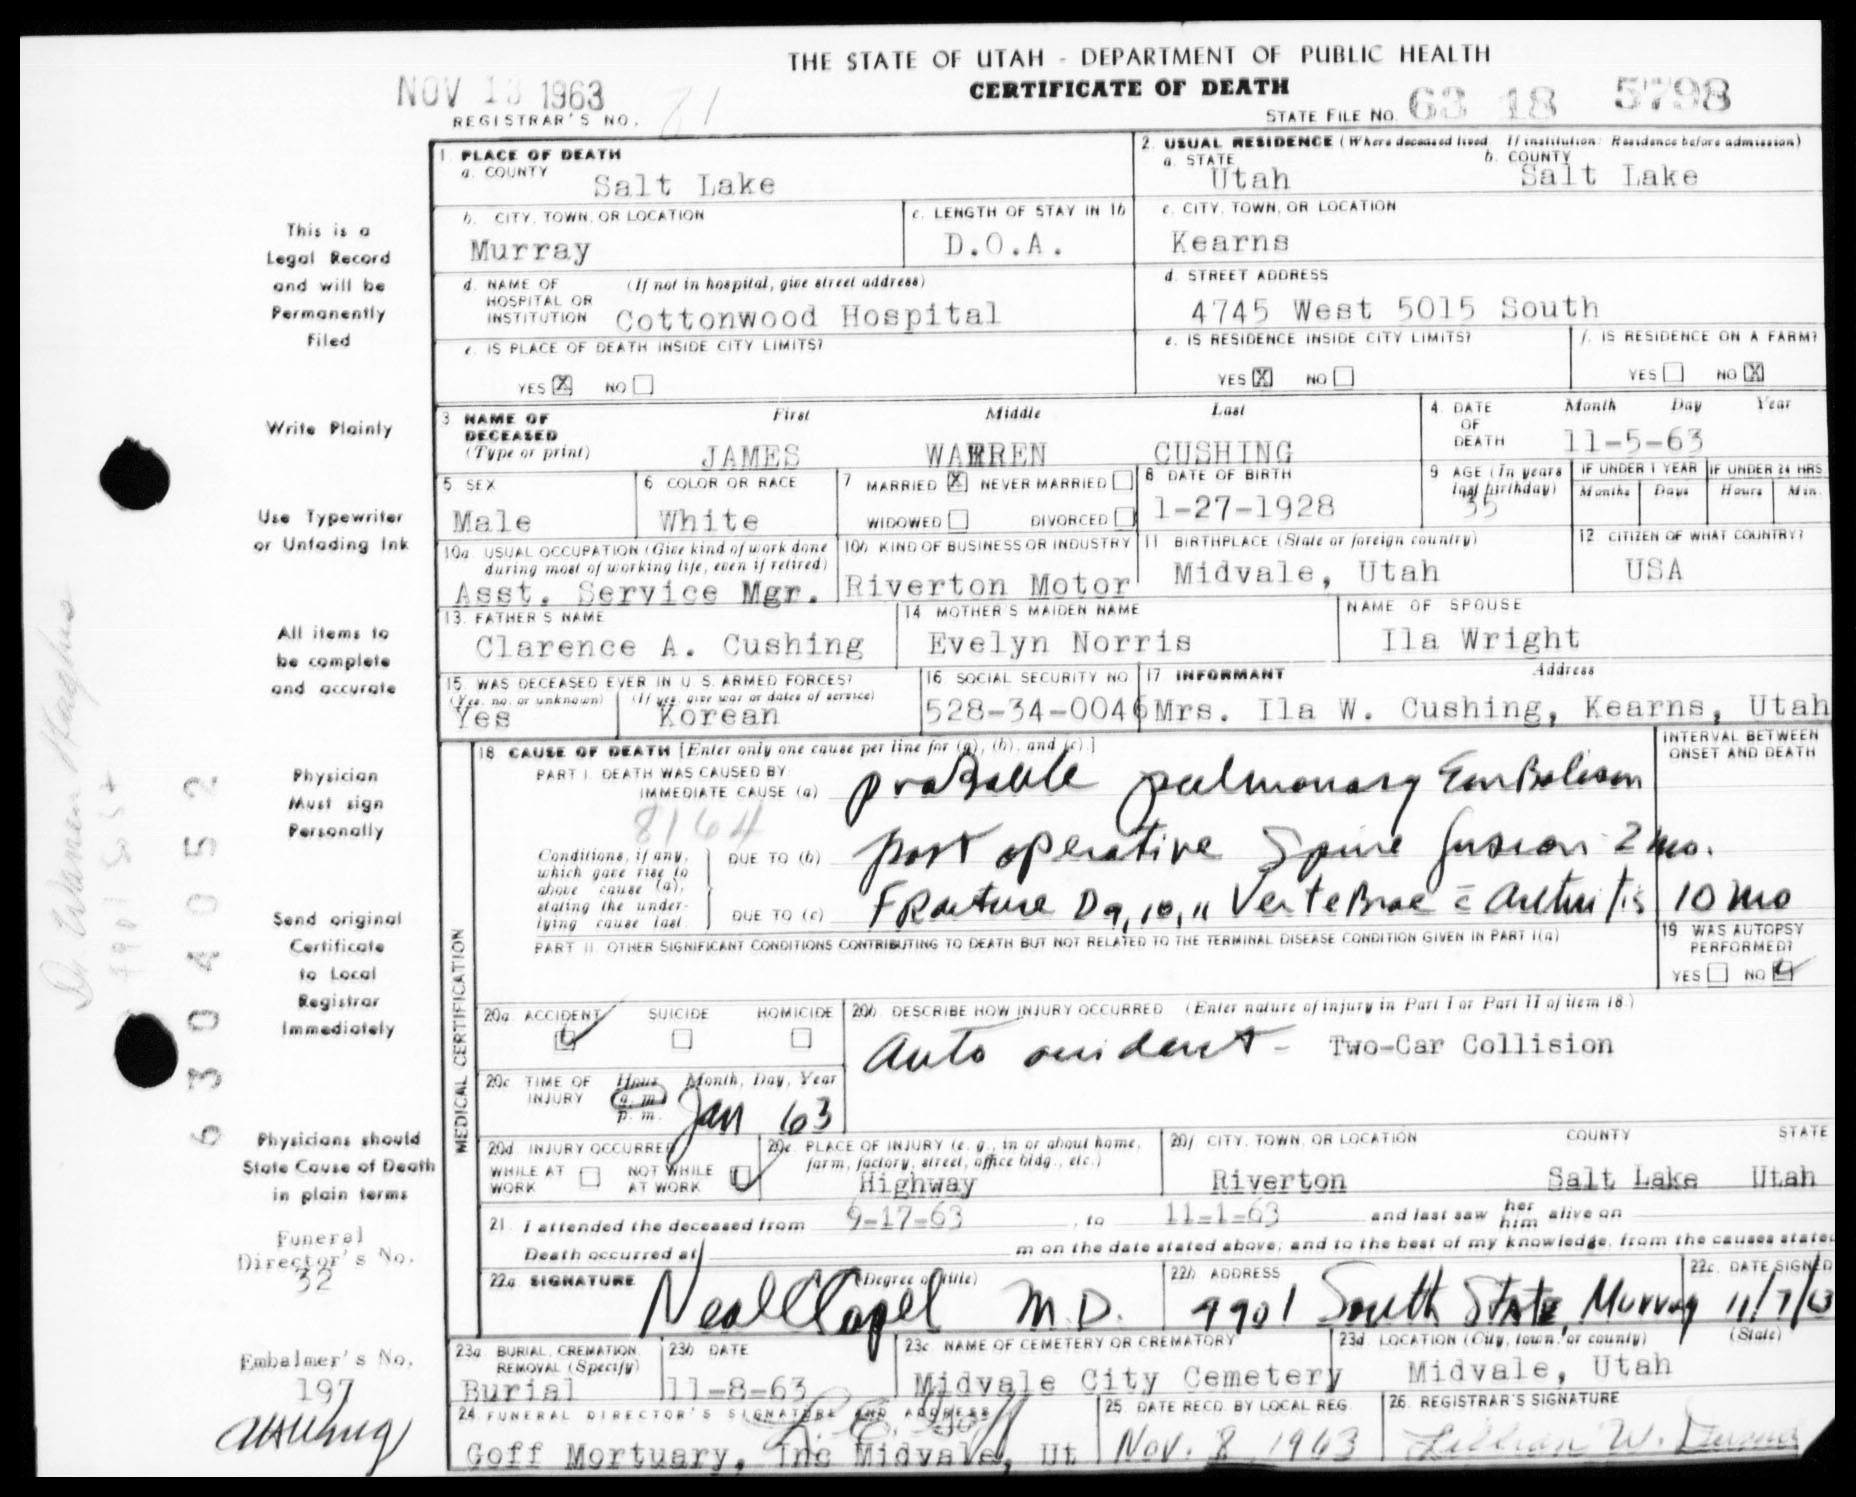 THE STATE OF UTAH - DEPARTMENT OF PUBLIC HEALTH
CERTIFICATE OF DEATH
NOV 13 1963
REGISTRAR'S NO.
STATE FILE NO. 63 18 5798
This is a
Legal Record
and will be
Permanently
Filed
Write Plainly
Use Typewriter
or Unfading Ink
All items to
be complete
and accurate
Physician
Must sign
Personally
Send original
Certificate
to Local
Registrar
Immediately
Physicians should
State Cause of Death
in plain terms
Funeral
Director's No.
32
Embalmer's No.
197
6304052
1. PLACE OF DEATH
a. COUNTY Salt Lake
2. USUAL RESIDENCE (Where deceased lived. If institution: Residence before admission)
a. STATE Utah
b. COUNTY Salt Lake
b. CITY, TOWN, OR LOCATION
Murray
c. LENGTH OF STAY IN 1b
D.O.A.
c. CITY, TOWN, OR LOCATION
Kearns
d. NAME OF HOSPITAL OR INSTITUTION (If not in hospital, give street address)
Cottonwood Hospital
d. STREET ADDRESS
4745 West 5015 South
e. IS PLACE OF DEATH INSIDE CITY LIMITS?
YES X NO
e. IS RESIDENCE INSIDE CITY LIMITS?
YES X NO
f. IS RESIDENCE ON A FARM?
YES NO X
3 NAME OF DECEASED (Type or print)
First Middle Last
JAMES WARREN CUSHING
4. DATE OF DEATH
Month Day Year
11-5-63
5 SEX
Male
6 COLOR OR RACE
White
7 MARRIED X NEVER MARRIED
WIDOWED DIVORCED
8 DATE OF BIRTH
1-27-1928
9 AGE (In years last birthday)
35
IF UNDER 1 YEAR
Months Days
IF UNDER 24 HRS
Hours Min.
10a. USUAL OCCUPATION (Give kind of work done during most of working life, even if retired)
Asst. Service Mgr.
10b KIND OF BUSINESS OR INDUSTRY
Riverton Motor
11 BIRTHPLACE (State or foreign country)
Midvale, Utah
12. CITIZEN OF WHAT COUNTRY?
USA
13. FATHER'S NAME
Clarence A. Cushing
14 MOTHER'S MAIDEN NAME
Evelyn Norris
NAME OF SPOUSE
Ila Wright
15. WAS DECEASED EVER IN U.S. ARMED FORCES?
(Yes, no, or unknown) (If yes, give war or dates of service)
Yes Korean
16 SOCIAL SECURITY NO
528-34-0046
17 INFORMANT Address
Mrs. Ila W. Cushing, Kearns, Utah
18 CAUSE OF DEATH [Enter only one cause per line for (a), (b), and (c).]
INTERVAL BETWEEN ONSET AND DEATH
PART I. DEATH WAS CAUSED BY:
IMMEDIATE CAUSE (a) probable pulmonary Embolism
8164
Conditions, if any, which gave rise to above cause (a), stating the underlying cause last.
DUE TO (b) post operative Spine fusion 2 mo.
DUE TO (c) FRacture D9,10,11 VerteBrae c̄ arthritis 10 mo
PART II. OTHER SIGNIFICANT CONDITIONS CONTRIBUTING TO DEATH BUT NOT RELATED TO THE TERMINAL DISEASE CONDITION GIVEN IN PART I(a)
19 WAS AUTOPSY PERFORMED?
YES NO ✓
MEDICAL CERTIFICATION
20a. ACCIDENT ✓ SUICIDE HOMICIDE
20b DESCRIBE HOW INJURY OCCURRED (Enter nature of injury in Part I or Part II of item 18.)
Auto accident - Two-Car Collision
20c TIME OF INJURY Hour Month, Day, Year
a. m.
p. m.
Jan 63
20d INJURY OCCURRED
WHILE AT WORK NOT WHILE AT WORK ✓
20e PLACE OF INJURY (e. g., in or about home, farm, factory, street, office bldg., etc.)
Highway
20f CITY, TOWN, OR LOCATION COUNTY STATE
Riverton Salt Lake Utah
21. I attended the deceased from 9-17-63, to 11-1-63 and last saw her him alive on
Death occurred at m on the date stated above; and to the best of my knowledge, from the causes stated
22a SIGNATURE (Degree or title)
M.D.
22b ADDRESS
South State, Murray
22c. DATE SIGNED
11/7/63
23a. BURIAL, CREMATION, REMOVAL (Specify)
Burial
23b DATE
11-8-63
23c NAME OF CEMETERY OR CREMATORY
Midvale City Cemetery
23d LOCATION (City, town, or county) (State)
Midvale, Utah
24 FUNERAL DIRECTOR'S SIGNATURE AND ADDRESS
Goff Mortuary, Inc Midvale, Ut
25 DATE RECD. BY LOCAL REG.
Nov. 8 1963
26. REGISTRAR'S SIGNATURE
Lillian W.